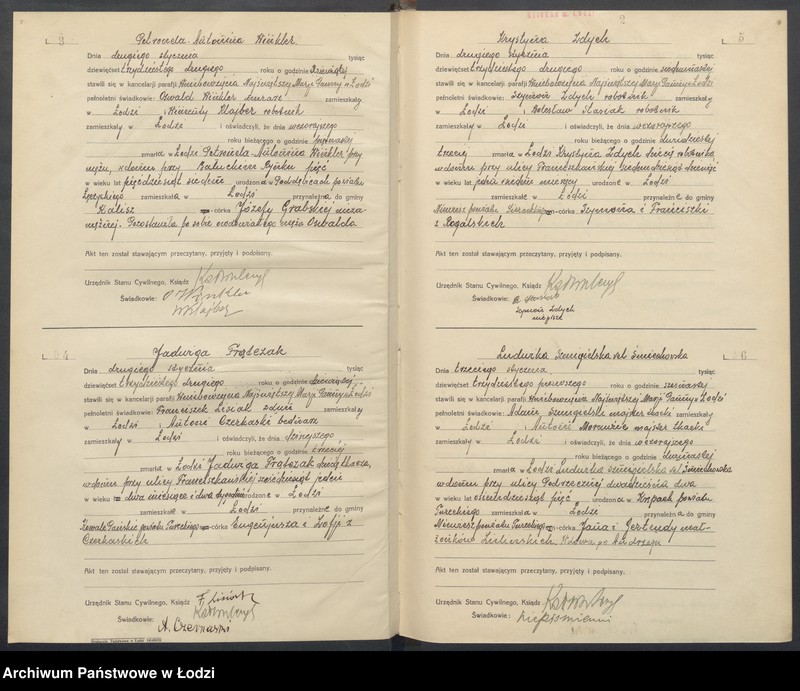 3
Petronela Antonina Winkler.
Dnia drugiego stycznia tysiąc
dziewięćset trzydziestego drugiego roku o godzinie dziewiątej
stawili się w kancelarji parafji Wniebowzięcia Najświętszej Marji Panny w Łodzi
pełnoletni świadkowie: Oswald Winkler murarz zamieszkały
w Łodzi i Wincenty Klajber robotnik
zamieszkały w Łodzi i oświadczyli, że dnia wczorajszego
roku bieżącego o godzinie
zmarła w Łodzi Petronela Antonina Winkler przy
mężu, w domu przy Bałuckim Rynku pięć
w wieku lat pięćdziesiąt siedem urodzona w Poddębicach powiatu
Łęczyckiego zamieszkała w Łodzi przynależna do gminy
Kalisz córka Józefy Grabskiej nieza-
mężnej. Pozostawiła po sobie owdowiałego męża Oswalda
Akt ten został stawającym przeczytany, przyjęty i podpisany.
Urzędnik Stanu Cywilnego, Ksiądz
Świadkowie: O Winkler
W Klajber
4
Jadwiga Frątczak
Dnia drugiego stycznia tysiąc
dziewięćset trzydziestego drugiego roku o godzinie dziewiątej
stawili się w kancelarji parafji Wniebowzięcia Najświętszej Marji Panny w Łodzi
pełnoletni świadkowie: Franciszek Lisiak zdun zamieszkały
w Łodzi i Antoni Czerkaski bednarz
zamieszkały w Łodzi i oświadczyli, że dnia dzisiejszego
roku bieżącego o godzinie trzeciej
zmarła w Łodzi Jadwiga Frątczak dziecię tkacza,
w domu przy ulicy Franciszkańskiej sześćdziesiąt jeden
w wieku dwa miesiące i dwa tygodnie urodzona w Łodzi
zamieszkała w Łodzi przynależna do gminy
Kowale Pańskie powiatu Tureckiego córka Eugenjusza i Zofji z
Czerkaskich
Akt ten został stawającym przeczytany, przyjęty i podpisany.
Urzędnik Stanu Cywilnego, Ksiądz F. Lisiak
Świadkowie:
A. Czerkaski
2
5
Krystyna Zdych
Dnia drugiego stycznia tysiąc
dziewięćset trzydziestego drugiego roku o godzinie
stawili się w kancelarji parafji Wniebowzięcia Najświętszej Marji Panny w Łodzi
pełnoletni świadkowie: Szymon Zdych robotnik zamieszkały
w Łodzi i Bolesław Stasiak robotnik
zamieszkały w Łodzi i oświadczyli, że dnia wczorajszego
roku bieżącego o godzinie dwudziestej
trzeciej zmarła w Łodzi Krystyna Zdych dziecię robotnika
w domu przy ulicy Franciszkańskiej siedemdziesiąt dziewięć
w wieku lat jeden siedem miesięcy urodzona w Łodzi
zamieszkała w Łodzi przynależna do gminy
Niewiesz powiatu córka Szymona i Franciszki
z Rogalskich
Akt ten został stawającym przeczytany, przyjęty i podpisany.
Urzędnik Stanu Cywilnego, Ksiądz
Świadkowie: B Stasiak
Szymon Zdych
niepiśm
6
Ludwika Szmigielska vel Śmiechowska
Dnia trzeciego stycznia tysiąc
dziewięćset trzydziestego pierwszego roku o godzinie szesnastej
stawili się w kancelarji parafji Wniebowzięcia Najświętszej Marji Panny w Łodzi
pełnoletni świadkowie: Adam Szmigielski majster tkacki zamieszkały
w Łodzi i Antoni Morawiec majster tkacki
zamieszkały w Łodzi i oświadczyli, że dnia wczorajszego
roku bieżącego o godzinie dwunastej
zmarła w Łodzi Ludwika Szmigielska vel Śmiechowska
w domu przy ulicy Podrzecznej dwadzieścia dwa
w wieku lat osiemdziesiąt pięć urodzona w powiatu
Tureckiego zamieszkała w Łodzi przynależna do gminy
Niewiesz powiatu Tureckiego córka Jana i Gertrudy mał-
żonków Wdowa po Andrzeju
Akt ten został stawającym przeczytany, przyjęty i podpisany.
Urzędnik Stanu Cywilnego, Ksiądz
Świadkowie: Niepiśmienni
Archiwum Państwowe w Łodzi